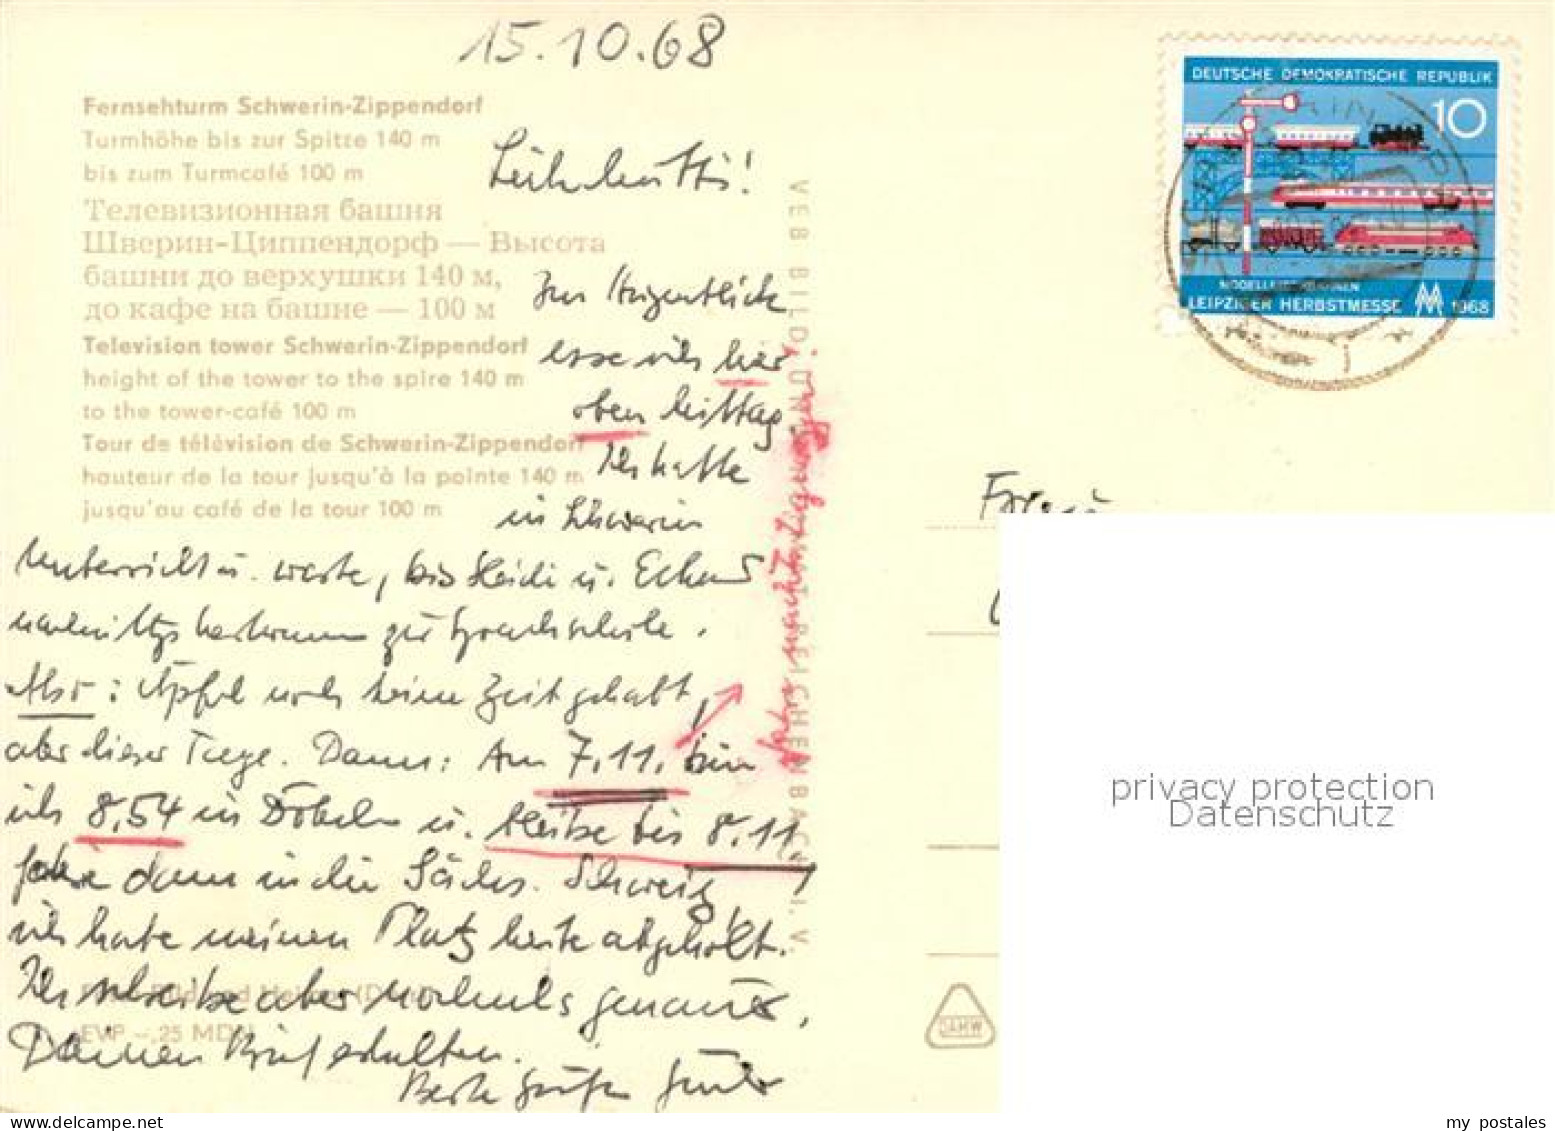 15.10.68
Fernsehturm Schwerin-Zippendorf
Turmhöhe bis zur Spitze 140 m
bis zum Turmcafé 100 m
Телевизионная башня
Шверин-Циппендорф — Высота
башни до верхушки 140 м,
до кафе на башне — 100 м
Television tower Schwerin-Zippendorf
height of the tower to the spire 140 m
to the tower-café 100 m
Tour de télévision de Schwerin-Zippendorf
hauteur de la tour jusqu'à la pointe 140 m
jusqu'au café de la tour 100 m
Im Augenblick
esse ich hier
oben Mittag.
Ich hatte
in Schwerin
Unterricht u. warte, bis Heidi u.
nachmittgs herkommen zur Sprachschule.
Also: Äpfel noch keine Zeit gehabt,
aber dieser Tage. Dann: Am 7.11. bin
ich 8.54 in Döbeln u. bleibe bis 8.11,
fahre dann in die Sächs. Schweiz,
ich habe meinen Platz heute abgeholt.
Ich schreibe aber nochmals genauer,
Deinen Brief erhalten.
Beste Grüße
VEB BILD UND REICHENBACH I. V.
EVP –,25 MDN
DEUTSCHE DEMOKRATISCHE REPUBLIK
10
MODELLEISENBAHNEN
LEIPZIGER HERBSTMESSE MM 1968
privacy protection
Datenschutz
my postales